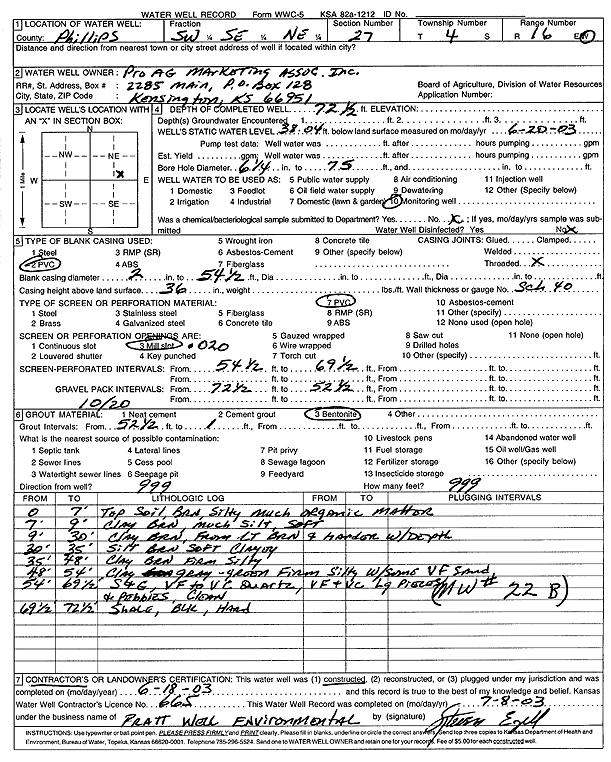 WATER WELL RECORD Form WWC-5 KSA 82a-1212 ID No.
1 LOCATION OF WATER WELL: Fraction Section Number Township Number Range Number
County: Phillips SW ¼ SE ¼ NE ¼ 27 T 4 S R 16 E/W
Distance and direction from nearest town or city street address of well if located within city?
2 WATER WELL OWNER: Pro AG Marketing Assoc. Inc.
RR#, St. Address, Box # : 2285 Main, P.O. Box 128 Board of Agriculture, Division of Water Resources
City, State, ZIP Code : Kensington, KS 66951 Application Number:
3 LOCATE WELL'S LOCATION WITH AN "X" IN SECTION BOX:
N
NW NE
W E
X
SW SE
S
1 Mile
4 DEPTH OF COMPLETED WELL 72 1/2 ft. ELEVATION:
Depth(s) Groundwater Encountered 1 ft. 2 ft. 3 ft.
WELL'S STATIC WATER LEVEL 38.04 ft. below land surface measured on mo/day/yr 6-20-03
Pump test data: Well water was ft. after hours pumping gpm
Est. Yield gpm; Well water was ft. after hours pumping gpm
Bore Hole Diameter 6 1/4 in. to 75 ft., and in. to ft.
WELL WATER TO BE USED AS: 5 Public water supply 8 Air conditioning 11 Injection well
1 Domestic 3 Feedlot 6 Oil field water supply 9 Dewatering 12 Other (Specify below)
2 Irrigation 4 Industrial 7 Domestic (lawn & garden) 10 Monitoring well
Was a chemical/bacteriological sample submitted to Department? Yes No X ; If yes, mo/day/yrs sample was submitted
Water Well Disinfected? Yes No X
5 TYPE OF BLANK CASING USED: 5 Wrought iron 8 Concrete tile CASING JOINTS: Glued Clamped
1 Steel 3 RMP (SR) 6 Asbestos-Cement 9 Other (specify below) Welded
2 PVC 4 ABS 7 Fiberglass Threaded X
Blank casing diameter 2 in. to 54 1/2 ft., Dia in. to ft., Dia in. to ft.
Casing height above land surface 36 in., weight lbs./ft. Wall thickness or gauge No. Sch 40
TYPE OF SCREEN OR PERFORATION MATERIAL: 7 PVC 10 Asbestos-cement
1 Steel 3 Stainless steel 5 Fiberglass 8 RMP (SR) 11 Other (specify)
2 Brass 4 Galvanized steel 6 Concrete tile 9 ABS 12 None used (open hole)
SCREEN OR PERFORATION OPENINGS ARE: 5 Gauzed wrapped 8 Saw cut 11 None (open hole)
1 Continuous slot 3 Mill slot .020 6 Wire wrapped 9 Drilled holes
2 Louvered shutter 4 Key punched 7 Torch cut 10 Other (specify) ft.
SCREEN-PERFORATED INTERVALS: From 54 1/2 ft. to 69 1/2 ft., From ft. to ft.
From ft. to ft., From ft. to ft.
GRAVEL PACK INTERVALS: From 72 1/2 ft. to 52 1/2 ft., From ft. to ft.
10/20 From ft. to ft., From ft. to ft.
6 GROUT MATERIAL: 1 Neat cement 2 Cement grout 3 Bentonite 4 Other
Grout Intervals: From 52 1/2 ft. to 1 ft., From ft. to ft., From ft. to ft.
What is the nearest source of possible contamination: 10 Livestock pens 14 Abandoned water well
1 Septic tank 4 Lateral lines 7 Pit privy 11 Fuel storage 15 Oil well/Gas well
2 Sewer lines 5 Cess pool 8 Sewage lagoon 12 Fertilizer storage 16 Other (specify below)
3 Watertight sewer lines 6 Seepage pit 9 Feedyard 13 Insecticide storage
Direction from well? 999 How many feet? 999
FROM TO LITHOLOGIC LOG FROM TO PLUGGING INTERVALS
0 7' Top Soil, BRN, Silty much organic mattor
7' 9' Clay BRN, much Silt, Soft
9' 30' Clay BRN, From LT BRN & harder w/Depth
30' 35' Silt BRN Soft Clayoy
35' 48' Clay BRN Firm Silty
48' 54' Clay gray-green Firm Silty w/Some VF Sand,
54' 69 1/2 S&G, VF to VC Quartz, VF & VC Lg Pieces
& Pebbies, Clean
(MW# 22 B)
69 1/2 72 1/2 Shale, Blk, Hard
7 CONTRACTOR'S OR LANDOWNER'S CERTIFICATION: This water well was (1) constructed, (2) reconstructed, or (3) plugged under my jurisdiction and was
completed on (mo/day/year) 6-18-03 and this record is true to the best of my knowledge and belief. Kansas
Water Well Contractor's Licence No. 665 This Water Well Record was completed on (mo/day/yr) 7-8-03
under the business name of Pratt Well Environmental by (signature)
INSTRUCTIONS: Use typewriter or ball point pen. PLEASE PRESS FIRMLY and PRINT clearly. Please fill in blanks, underline or circle the correct answers. Send top three copies to Kansas Department of Health and
Environment, Bureau of Water, Topeka, Kansas 66620-0001. Telephone 785-296-5524. Send one to WATER WELL OWNER and retain one for your records. Fee of $5.00 for each constructed well.